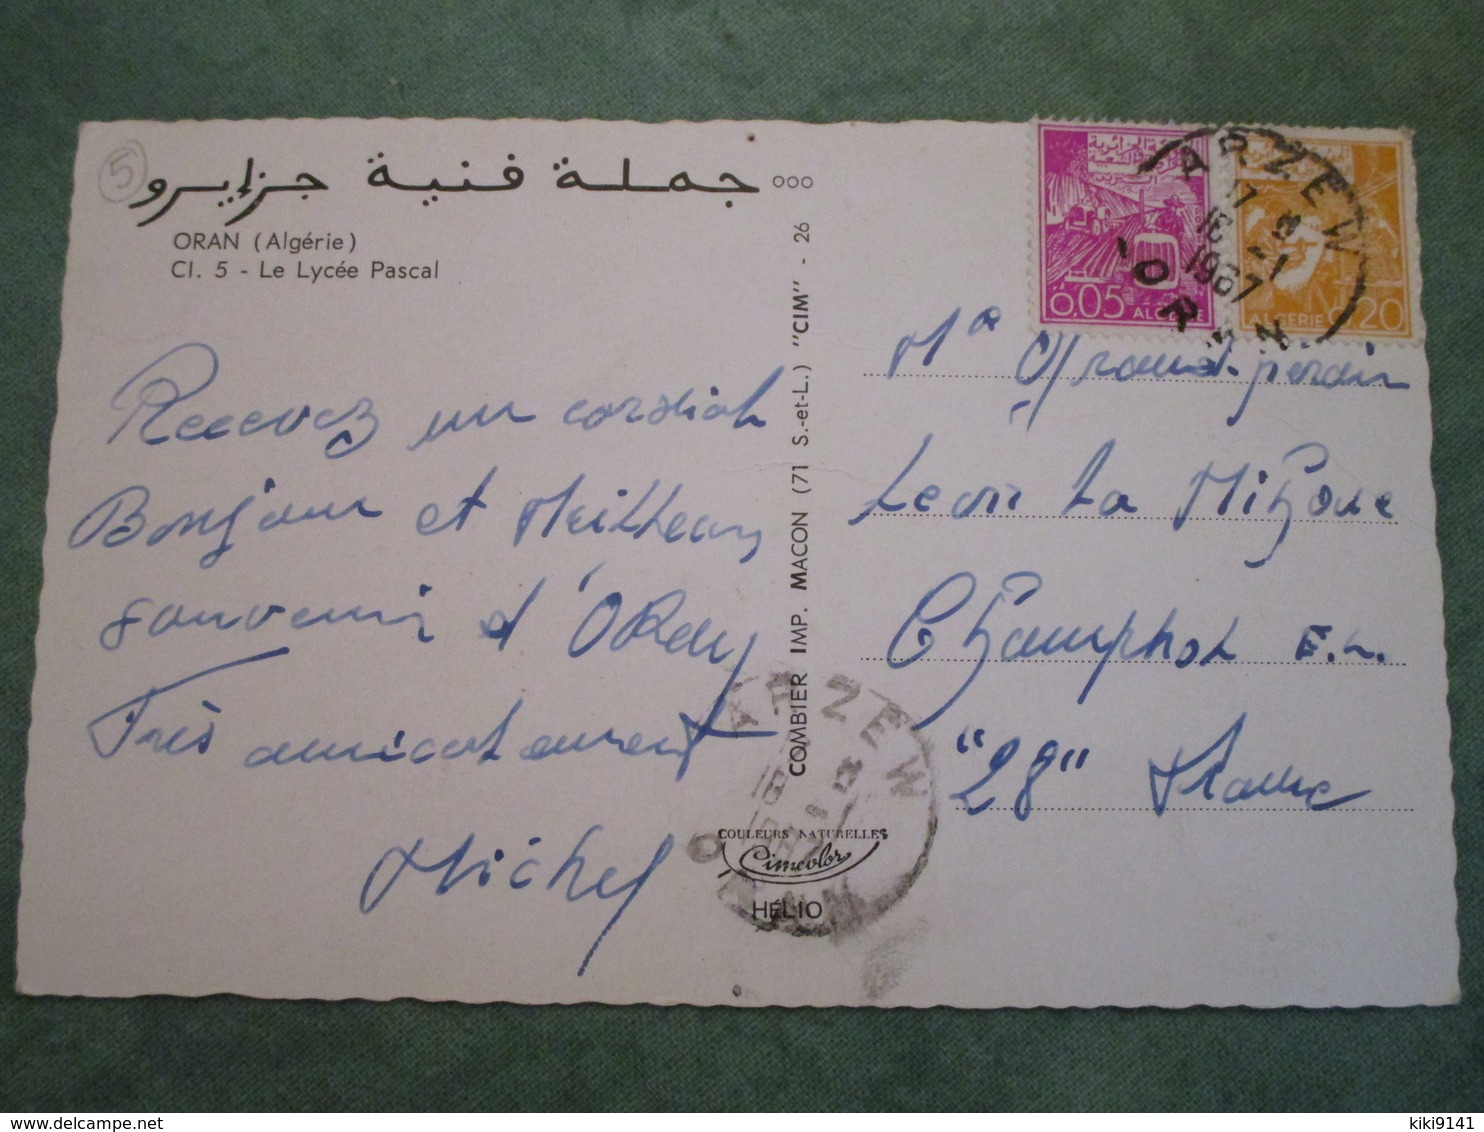 5
جملة فنية جزايرو
ORAN (Algérie)
Cl. 5 - Le Lycée Pascal
Recevez un cordial
Bonjour et Meilleur
souvenir d'ORan
Très amicalement
Michel
COMBIER IMP. MACON (71 S.-et-L.) "CIM" - 26
COULEURS NATURELLES
Cimcolor
HÉLIO
ARZEW
ORAN
0,05 ALGERIE
ALGERIE 0,20
ARZEW
17
16 -1
1967
ORAN
Mr
Leon La
Champhol E.L.
"28" France
kiki9141